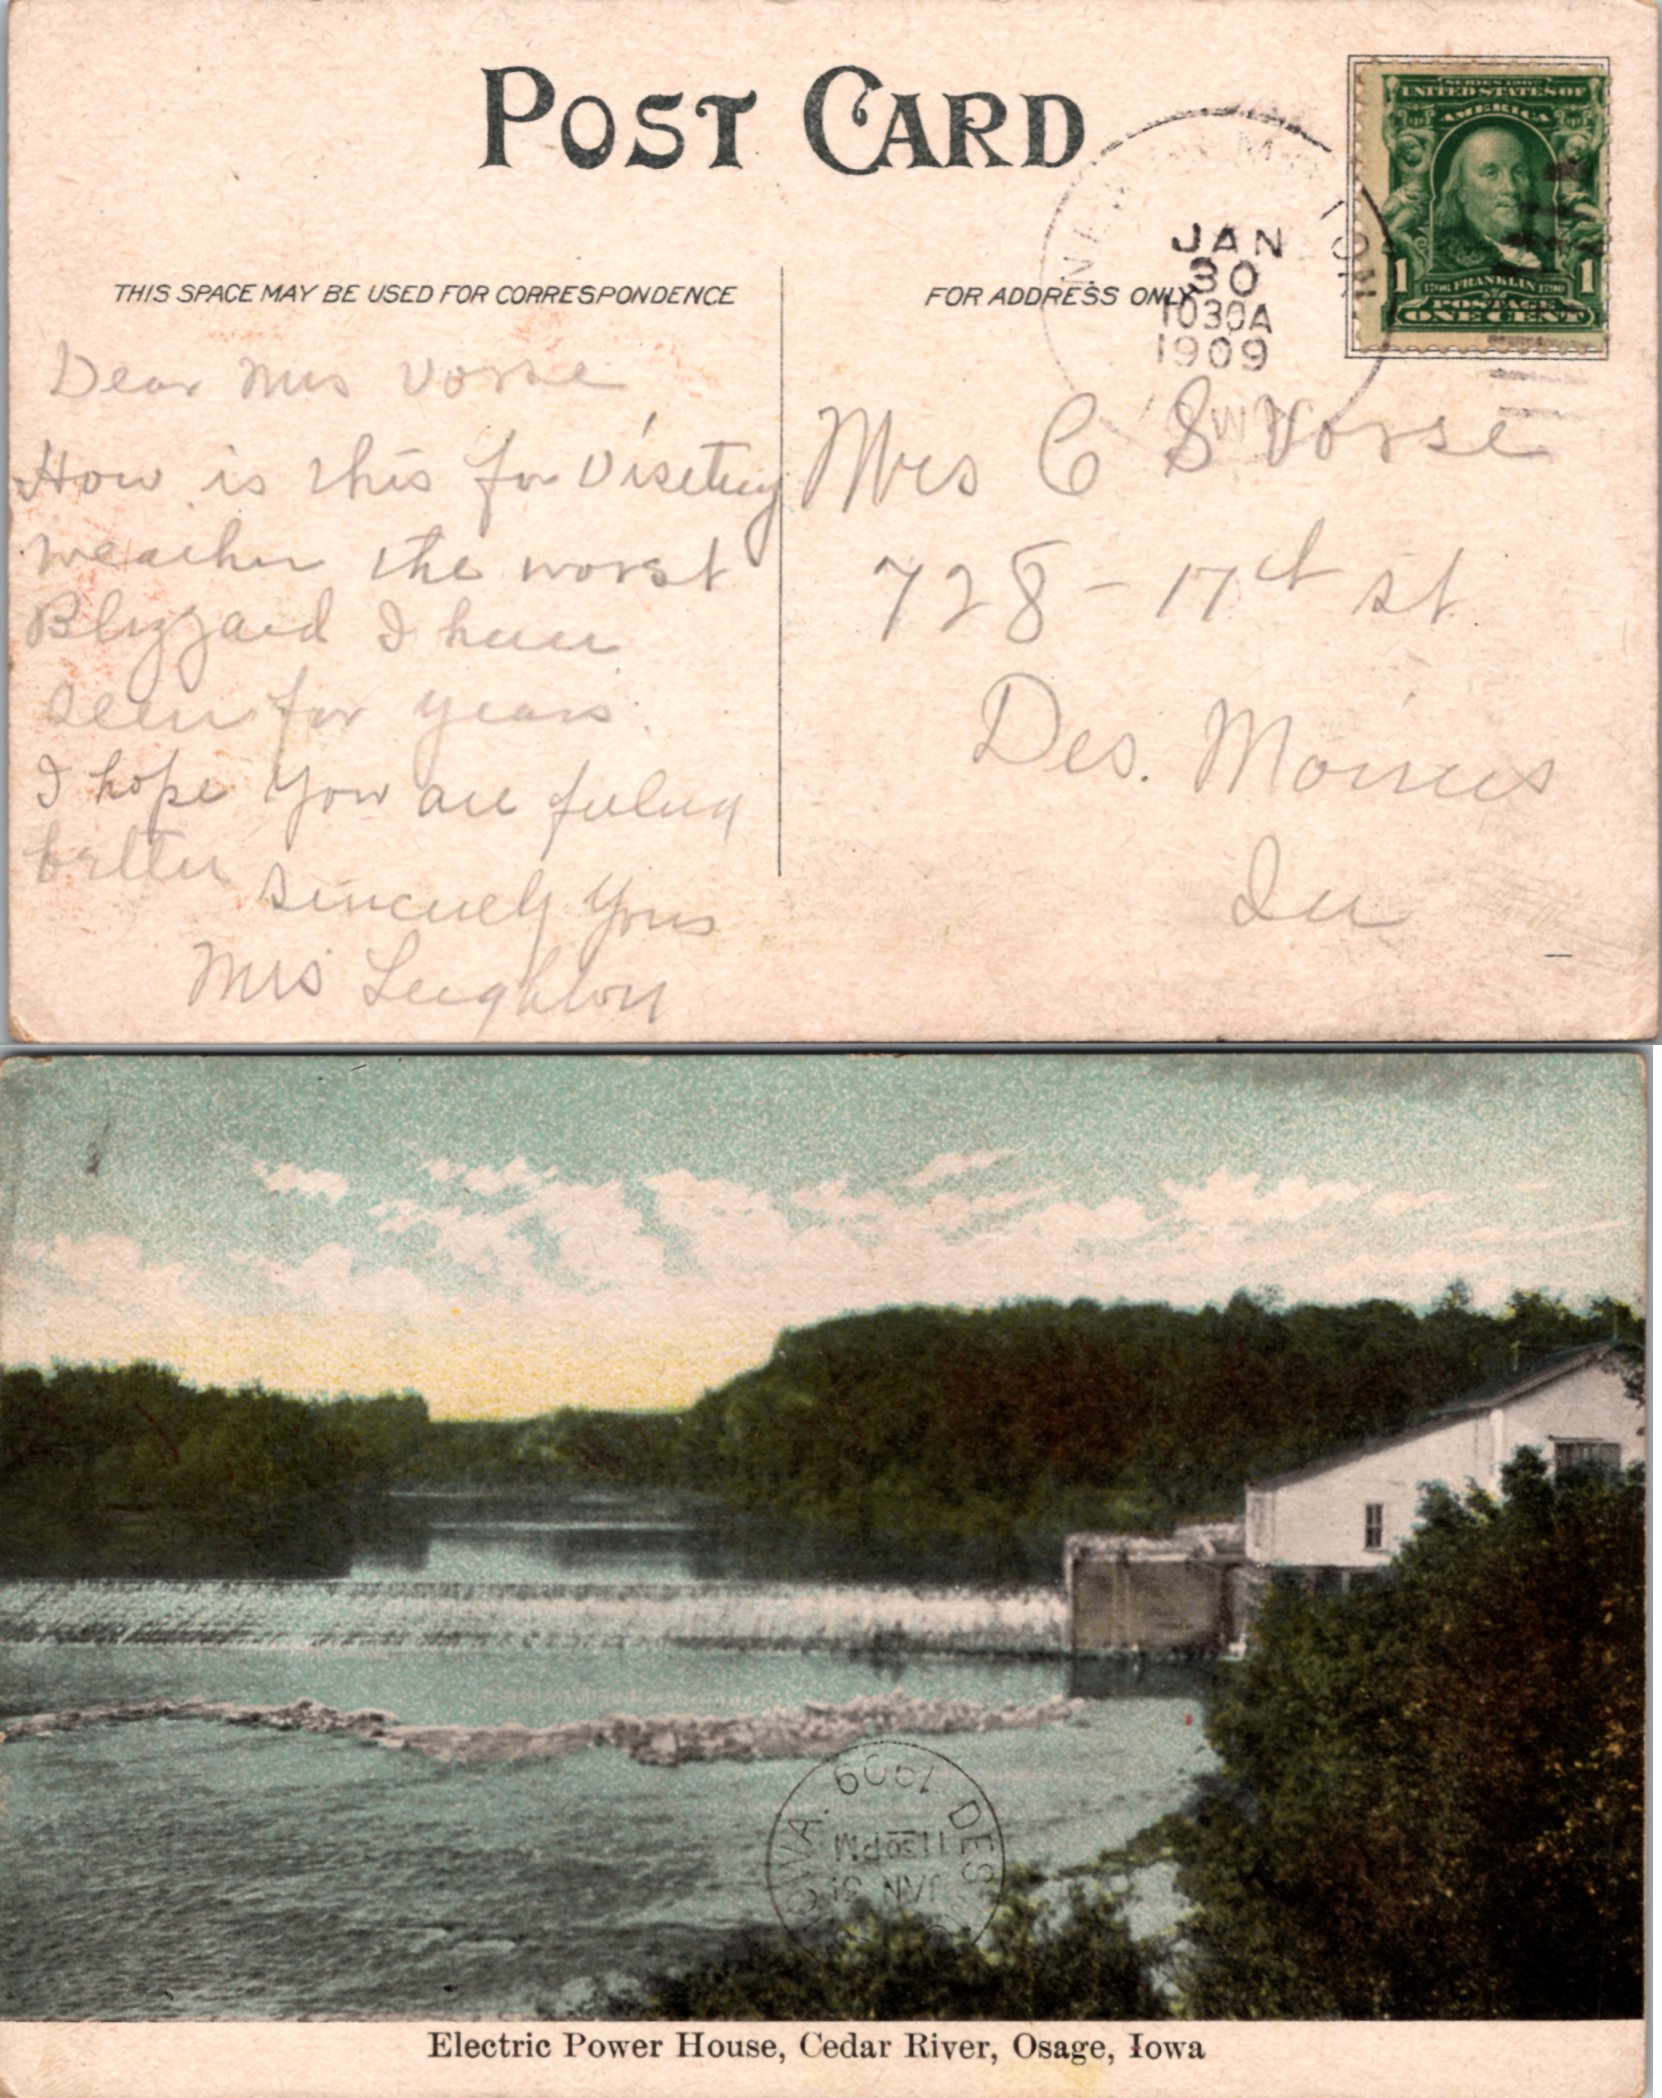 POST CARD
SERIES 1902
UNITED STATES OF
AMERICA
1706 FRANKLIN 1790
1 1
POSTAGE
ONE CENT
JAN
30
1030A
1909
THIS SPACE MAY BE USED FOR CORRESPONDENCE
FOR ADDRESS ONLY
Dear Mrs Vorse
How is this for Viseting
weather the worst
Blizzard I have
seen for years.
I hope you are feeling
better
Sincerely Yours
Mrs Leighton
Mrs C S Vorse
728 - 17th st
Des. Moines
Ia
1909 DES
IOWA.
11 30 PM
JAN 31
Electric Power House, Cedar River, Osage, Iowa